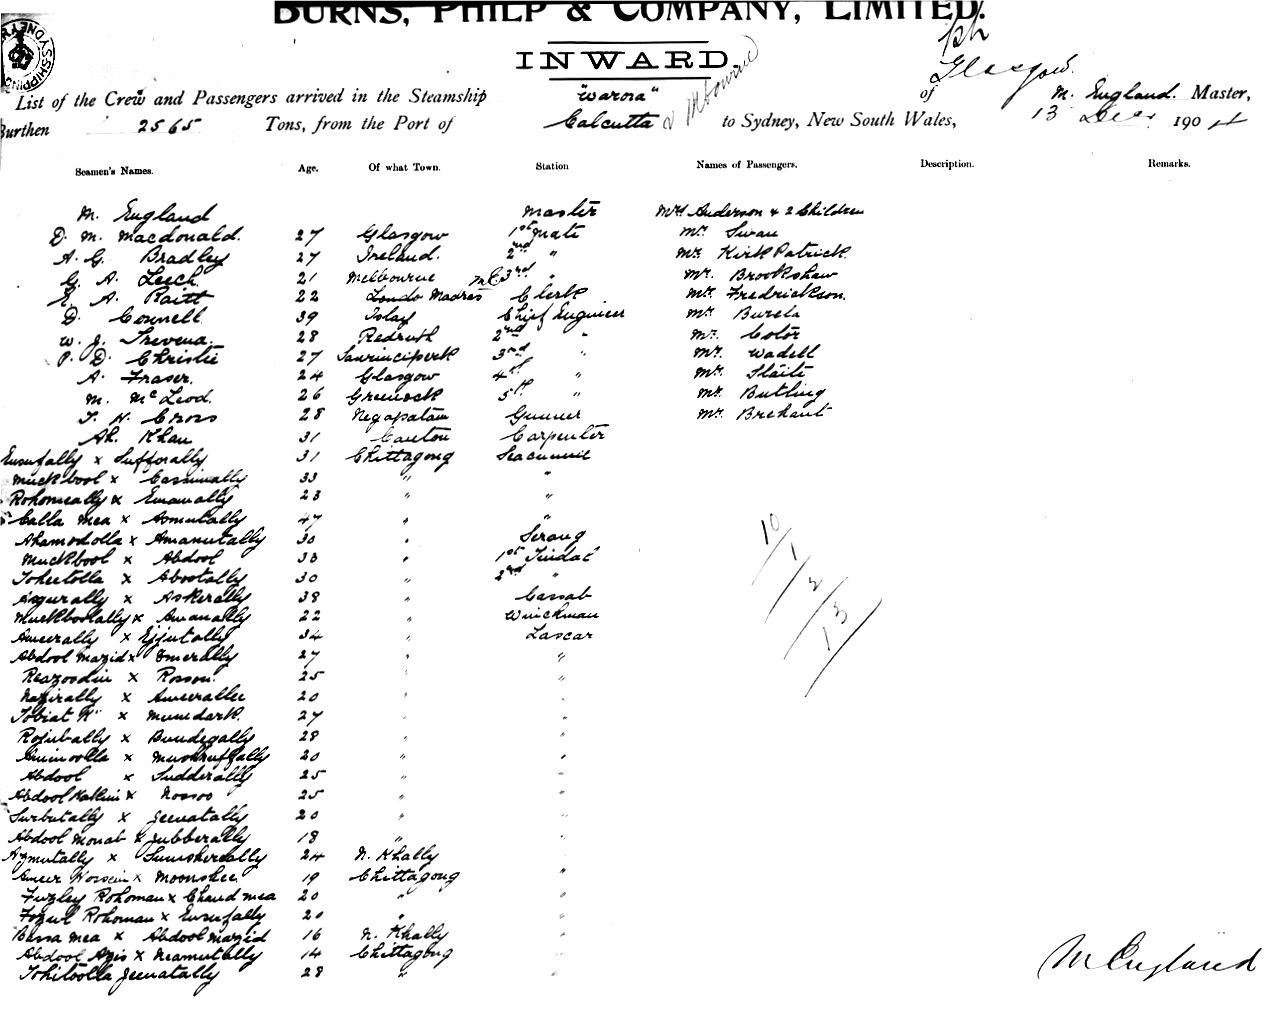 BURNS, PHILP & COMPANY, LIMITED.
INWARD.
Glasgow.
List of the Crew and Passengers arrived in the Steamship "Warora" of M. England. Master,
Burthen 2565 Tons, from the Port of Calcutta & Mbourne to Sydney, New South Wales, 13 Dec. 1904
Seamen's Names. Age. Of what Town. Station Names of Passengers. Description. Remarks.
M. England Master Mrs Anderson & 2 Children
D. M. Macdonald. 27 Glasgow 1st Mate Mr Swan
A. G. Bradley 27 Ireland. 2nd " Mr. KirkPatrick
G. A. Leech. 21 Melbourne 3rd " Mr. Brookshaw
E. A. Raitt 22 Clerk Mr. Fredrickson.
D. Connell. 39 Islay Chief Engineer Mr.
W. J. Trevena. 28 Redruth 2nd " Mr.
P. D. Christie 27 3rd " Mr. Wadell
A. Fraser. 24 Glasgow 4th " Mr.
M. McLeod. 26 Greenock 5th " Mr. Butling
T. H. Cross 28 Negapatam Gunner Mr. Brehaut
Ah. Khan 31 Canton Carpenter
Eusufally x Sufferally 31 Chittagong Seacunnie
Muckbool x Cassimally 33 " "
Rohomeally x Emamally 23 " "
Calla Mea x Asmutally 47 " "
x Amanutally 30 " Serang
Muckbool x Abdool 33 " 1st Tindal
x 30 " 2nd "
Asgurally x Askerally 38 " Cassab
Muckboolally x Amanally 22 " Winchman
Ameerally x Ejjutally 34 " Lascar
Abdool Mazid x Omerally 27 " "
Reazoodin x 25 " "
Nazirally x Ameerallee 20 " "
x 27 " "
x Bundegally 28 " "
x 20 " "
Abdool x Sudderally 25 " "
Abdool x Nossoo 25 " "
Surbutally x Jeenatally 20 " "
Abdool Monab x Jubberally 18 " "
Azmutally x 24 N. Khally
Ameer Hossein x Moonshee. 19 Chittagong "
Fuzley Rohoman x Chand Mea 20 " "
Fozul Rohoman x Eusufally 20 " "
Bassa Mea x Abdool Mazid 16 N. Khally "
Abdool Azis x Neamutally 14 Chittagong "
Tohitoolla Jeenatally 28 " "
10/
1/
2/
13/
M England